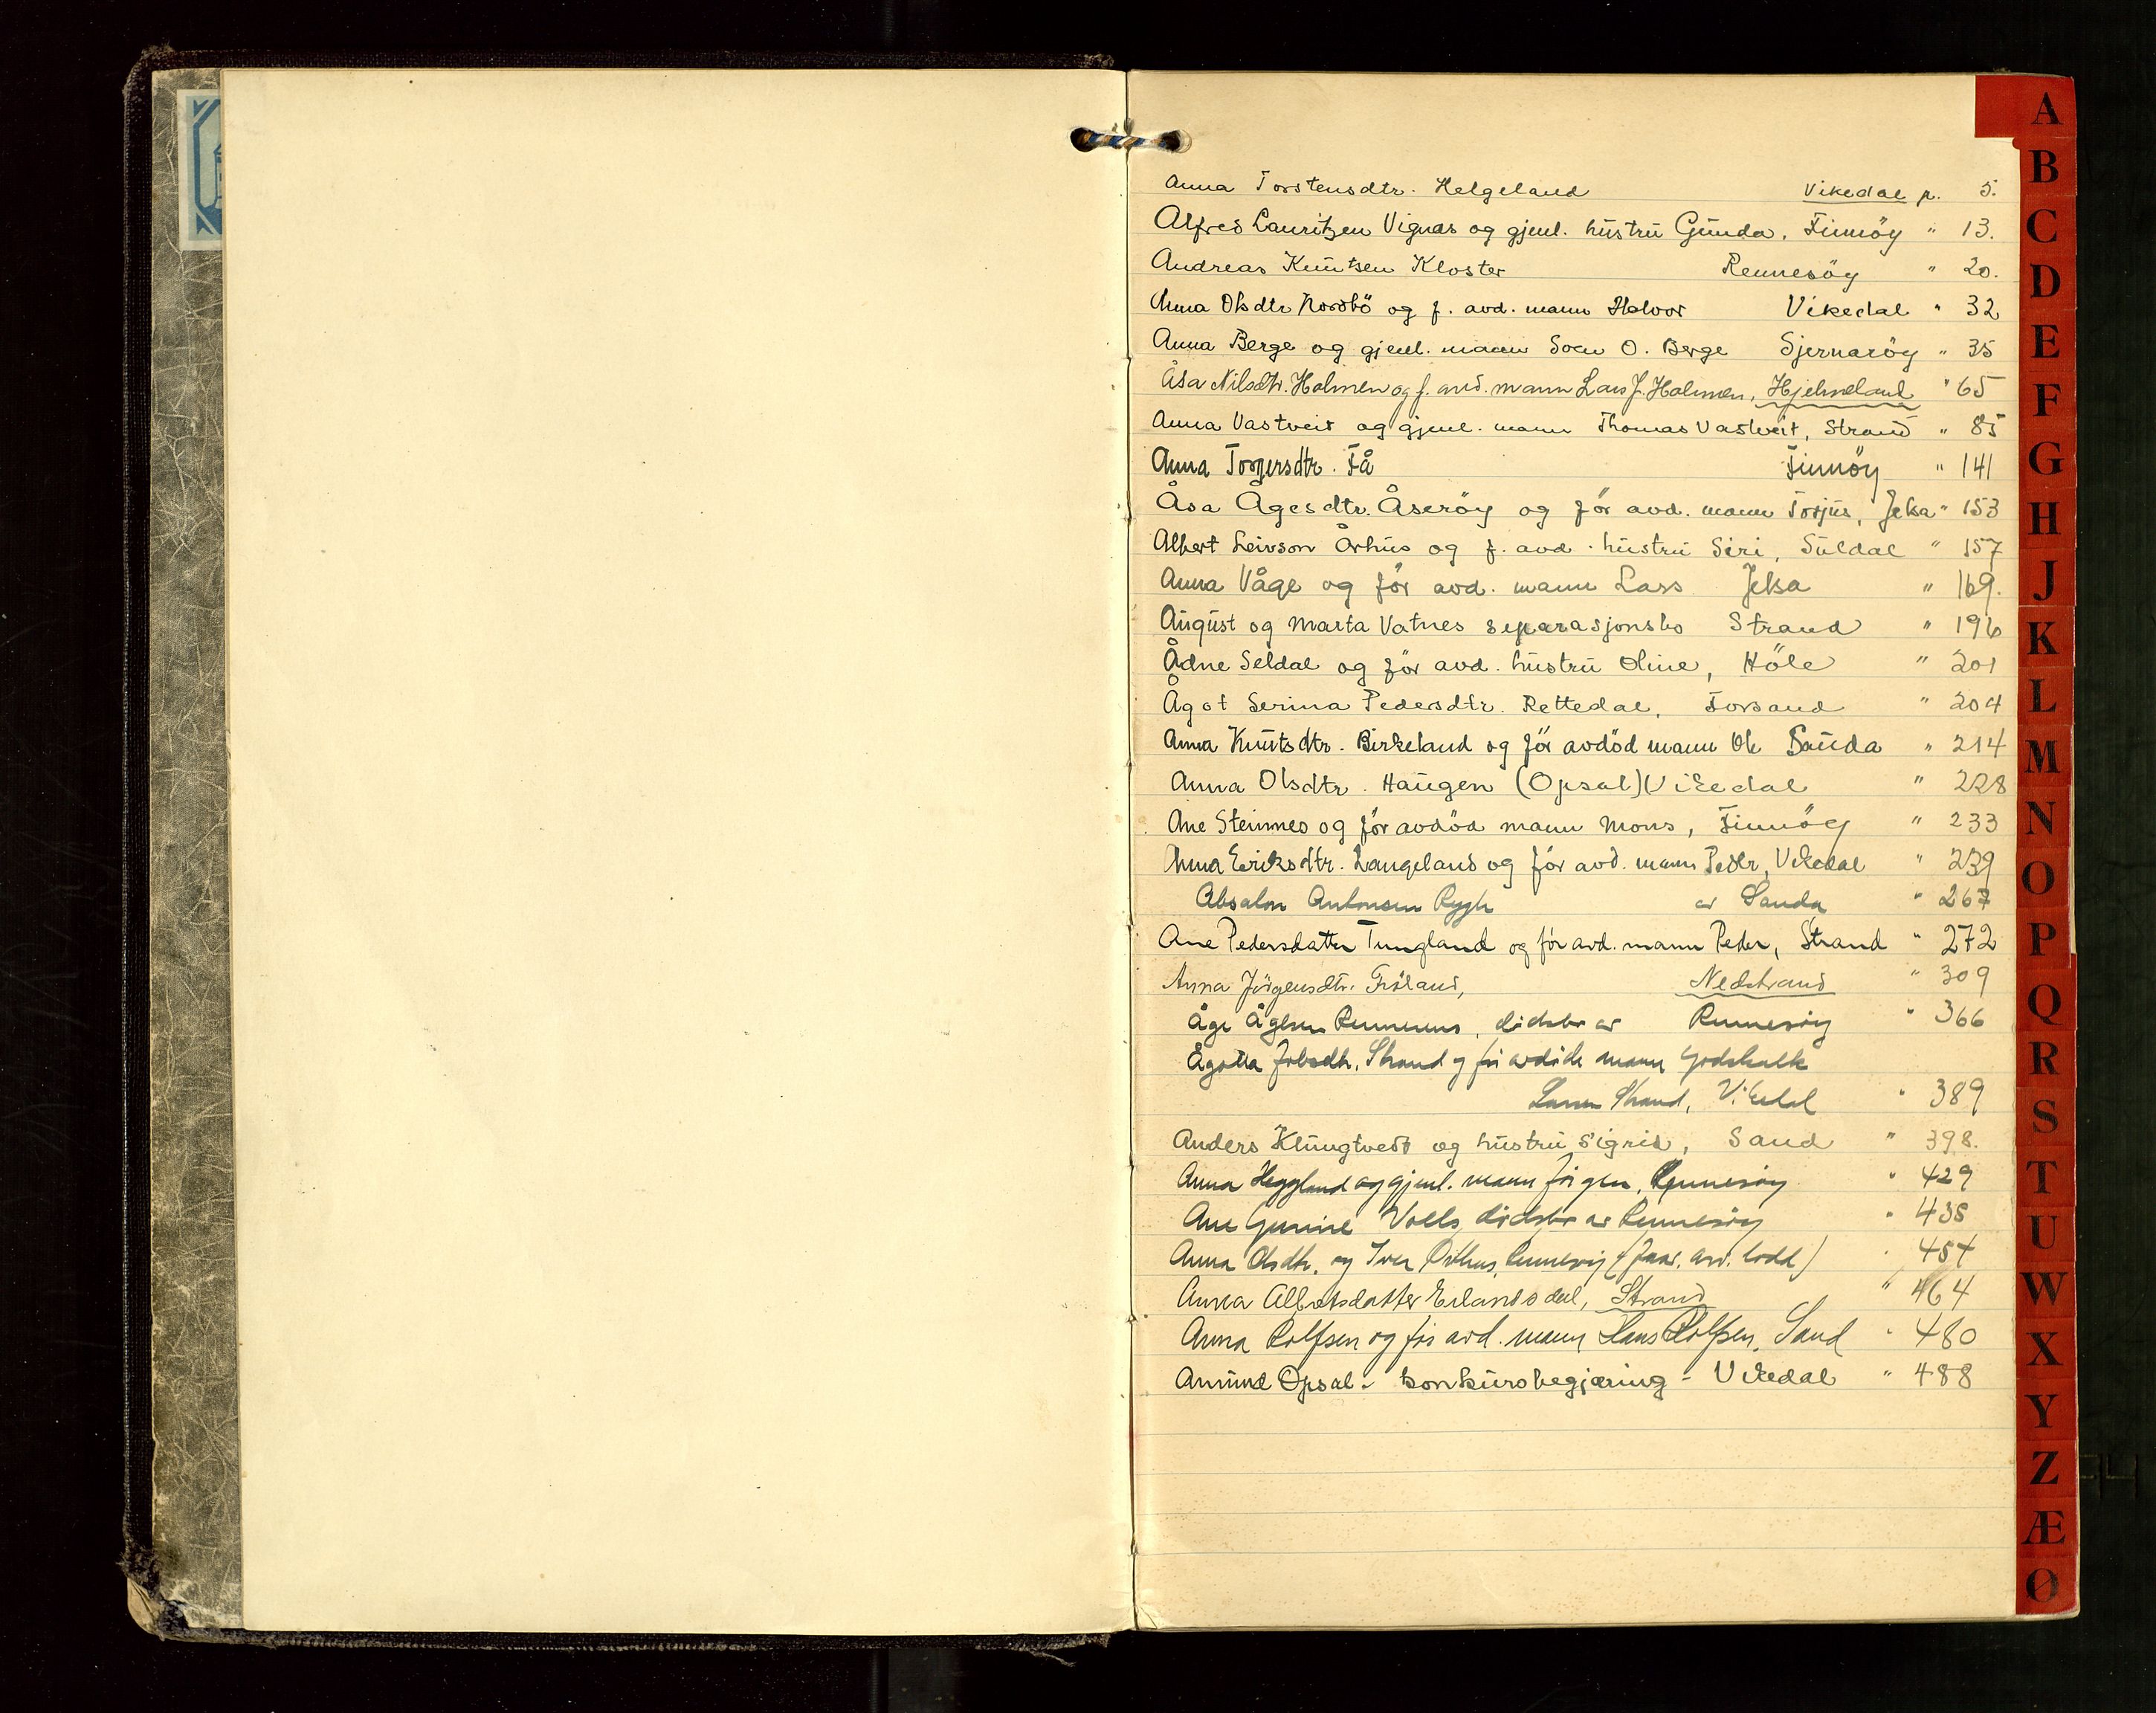 Anna Torstensdtr. Helgeland Vikedal p. 5.
Alfred Lauritzen Vignes og gjenl. hustru Gunda, Finnöy " 13.
Andreas Knutsen Kloster Rennesöy " 20.
Anna Olsdtr Nordbö og f. avd. mann Halvor Vikedal " 32
Anna Berge og gjenl. mann Soen O. Berge Sjernaröy " 35
Åsa Nilsdtr. Holmen og f. avd. mann Lars J. Holmen, Hjelmeland " 65
Anna Vastveit og gjenl. mann Thomas Vastveit, Strand " 85
Anna Torgersdtr. Få Finnöy " 141
Åsa Ågesdtr. Åseröy og för avd. mann Torjus, Jelsa " 153
Albert Leivson Århus og f. avd. hustru Siri, Suldal " 157
Anna Våge og för avd. mann Lars Jelsa " 169.
August og Marta Vatnes separasjonsbo Strand " 196
Ådne Seldal og för avd. hustru Oline, Höle " 201
Ågot Serina Pedersdtr. Rettedal, Forsand " 204
Anna Knutsdtr. Birkeland og för avdöd mann Ole Sauda " 214
Anna Olsdtr. Haugen (Opsal) Vikedal " 228
Ane Steinnes og för avdöd mann Mons, Finnöy " 233
Anna Eriksdtr. Langeland og för avd. mann Peder, Vikedal " 239
Absalon Antonsen Rygh av Sauda " 267
Ane Pedersdatter Tungland og för avd. mann Peder, Strand " 272
Anna Jörgensdtr. Fröland, Nedstrand " 309
Åge Ågesen Rennesöy " 366
Ågotta Jobsdtr. Strand og för avdöde mann Godskalk
Larsen Strand, Vikedal " 389
Anders Klungtvedt og hustru Sigrid, Sand " 398.
Anna Heggland og gjenl. mann Jörgen, Rennesöy " 429
Ane Gurine Voll, dödsbo av Rennesöy " 435
Anna Olsdtr. og Iver Rennesöy " 454
Anna Albretsdatter Erlandsdal, Strand " 464
Anna Rolfsen og för avd. mann Hans Rolfsen, Sand " 480
Amund Opsal - konkursbegjæring - Vikedal " 488
A
B
C
D
E
F
G
H
J
K
L
M
N
O
P
Q
R
S
T
U
W
X
Y
Z
Æ
Ø